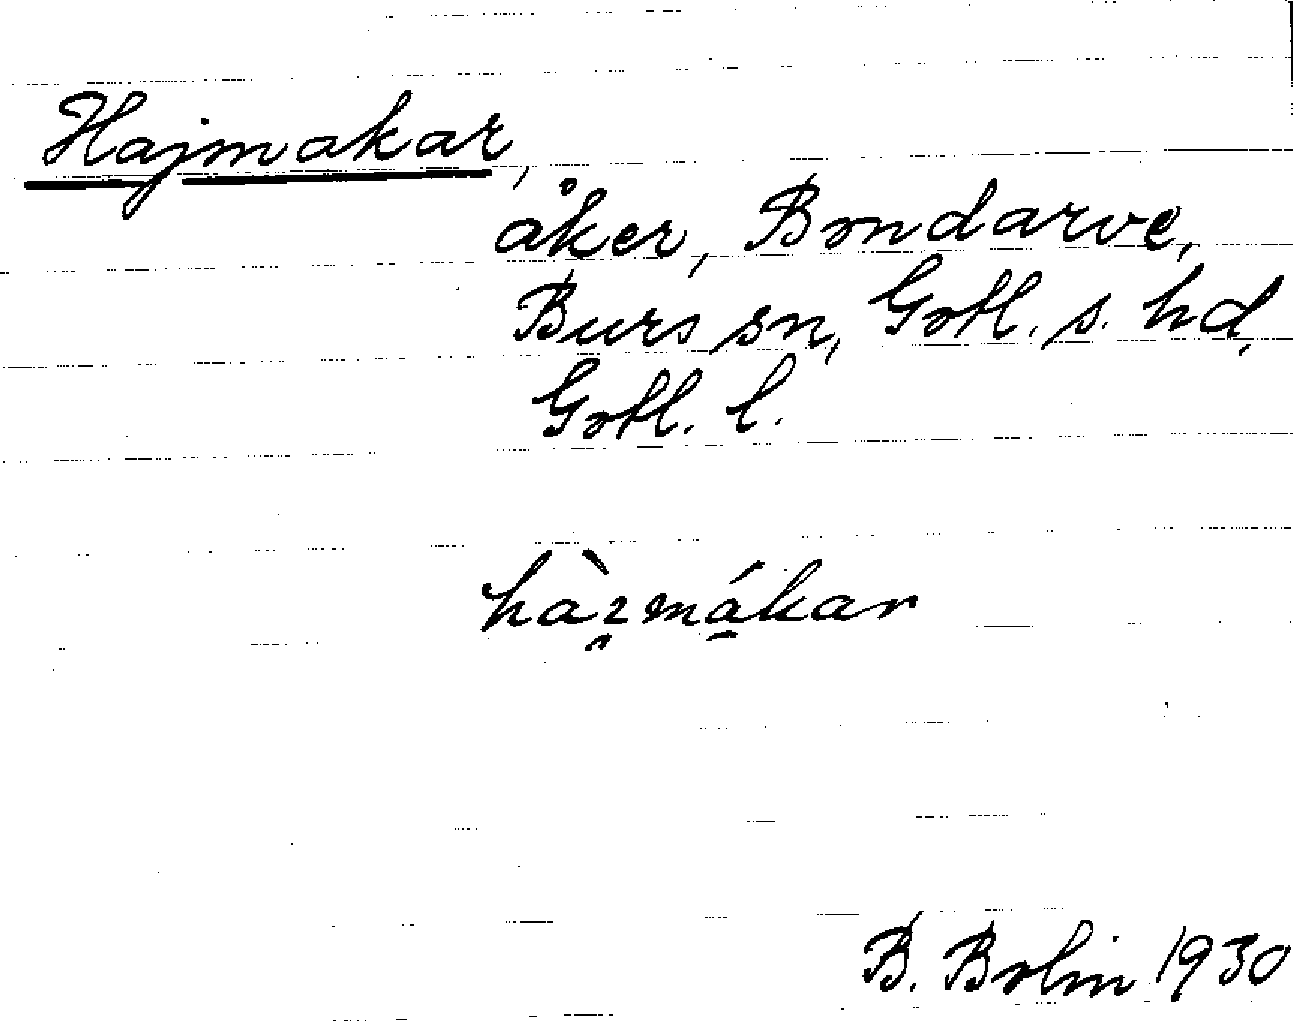 Hajmakar,
åker, Bondarve,
Burs sn, Gotl. s. hd,
Gotl. l.
B. Bolin 1930